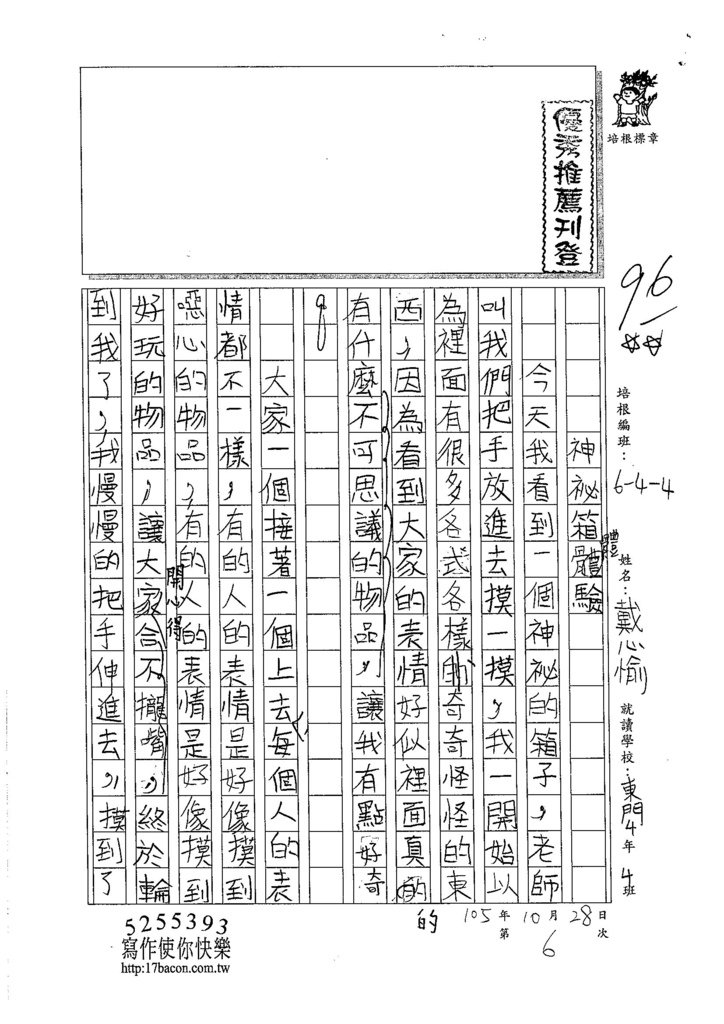 培根標章
優秀推薦刊登
96
培根編班：6-4-4
姓名：戴心愉
就讀學校：東門4年4班
105年10月28日
第6次
神祕箱體驗
體
今天我看到一個神祕的箱子，老師
叫我們把手放進去摸一摸，我一開始以
為裡面有很多各式各樣的奇奇怪怪的東
西，因為看到大家的表情好似裡面真的
的
有什麼不可思議的物品，讓我有點好奇
。
大家一個接著一個上去每個人的表
情都不一樣，有的人的表情是好像摸到
噁心的物品，有的人的表情是好像摸到
開心得
好玩的物品，讓大家合不攏嘴，終於輪
到我了，我慢慢的把手伸進去，摸到了
5255393
寫作使你快樂
http:17bacon.com.tw